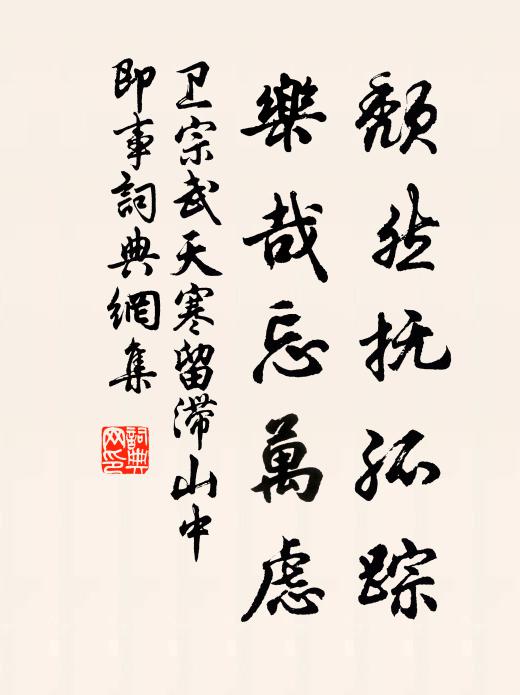 颓然抚孤踪
樂哉忘萬慮
卫宗武天寒留滞山中
即事詞典網集
詞典
网印